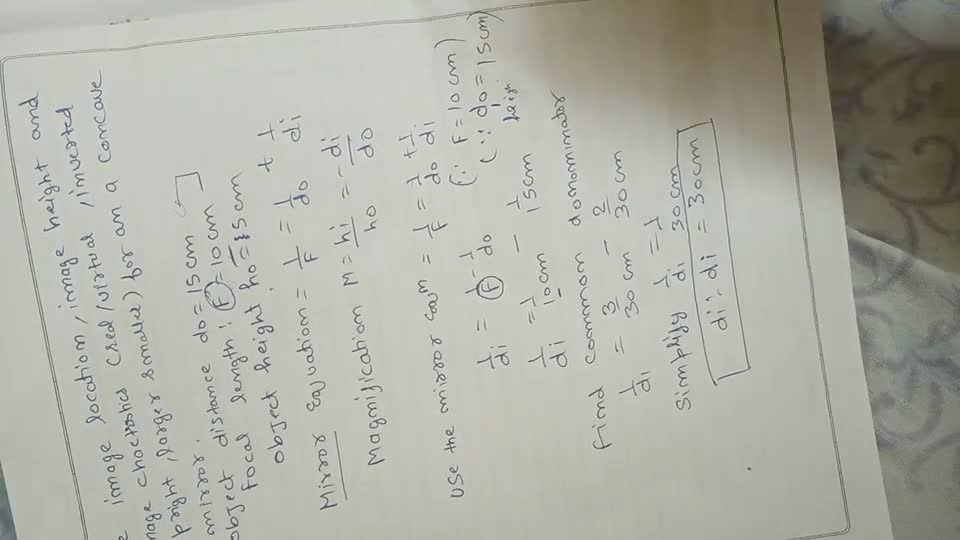 image location, image height and
chactristics (red/virtual /inverted
pright, larger smaller) for an a concave
mirror.
object distance do = 15cm
Focal length: F = 10cm
object height ho = 5cm
Mirror Equation = 1/F = 1/do + 1/di
Magnification M = hi/ho = -di/do
Use the mirror = 1/F = 1/do + 1/di
1/di = 1/F - 1/do (∵ F = 10cm)
(∵ do = 15cm)
1/di = 1/10cm - 1/15cm
Find common donominator
1/di = 3/30cm - 2/30cm
Simplify 1/di = 1/30cm
di∴ di = 30cm